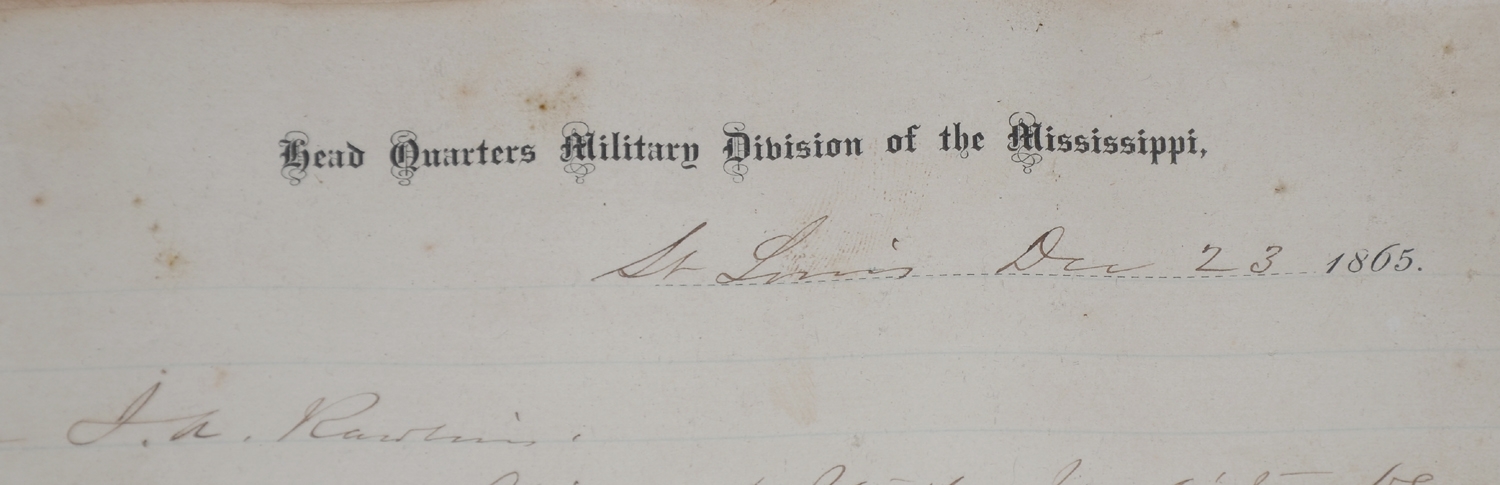 Head Quarters Military Division of the Mississippi,
St Louis Dec 23 1865.
J. A. Rawlins.